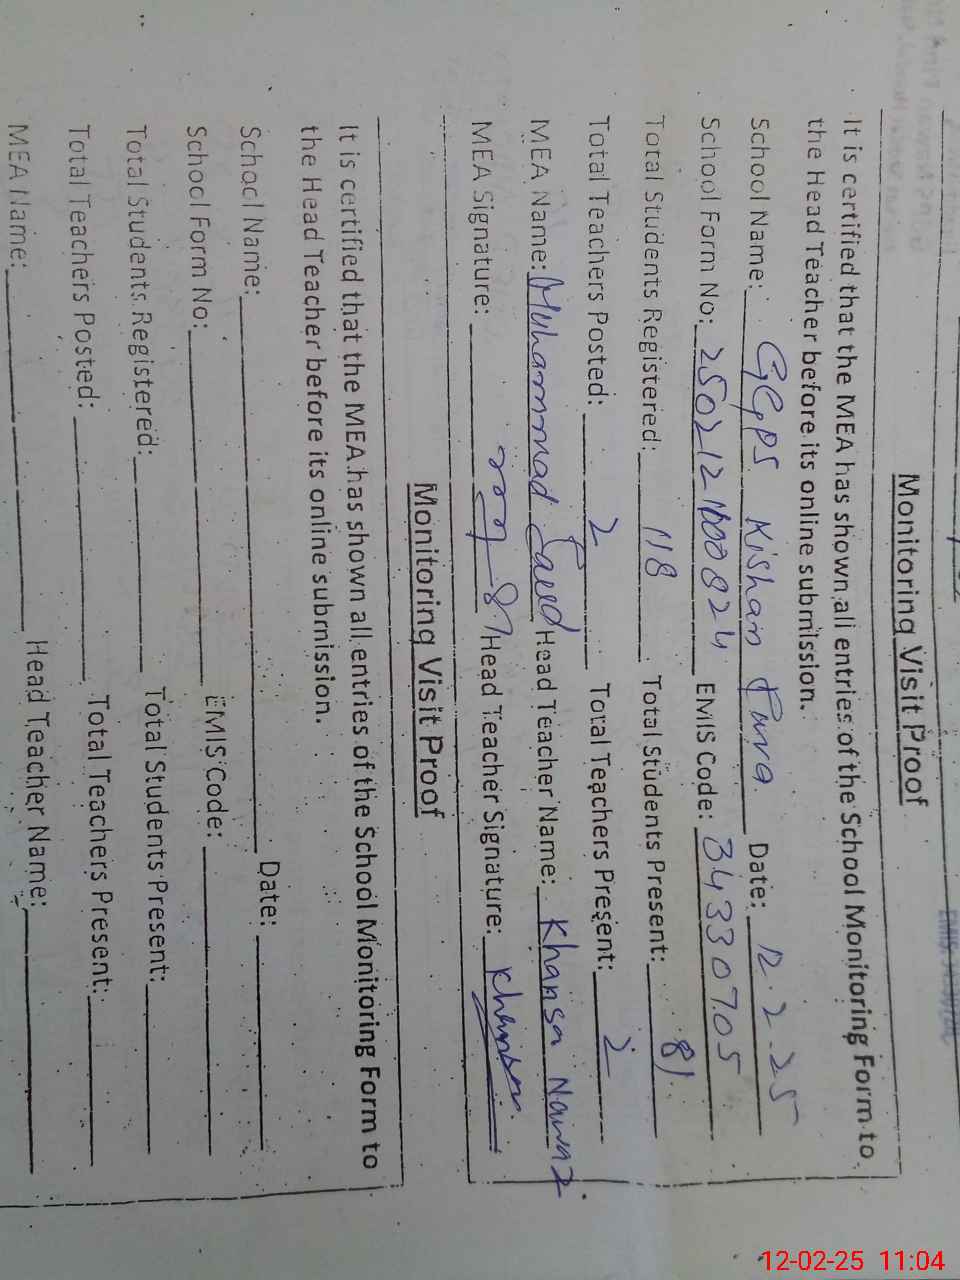 Monitoring Visit Proof
It is certified that the MEA has shown all entries of the School Monitoring Form to
the Head Teacher before its online submission.
School Name: GGPS Kishan Pura Date: 12.2.25
School Form No: 25021210000824 EMIS Code: 34330705
Total Students Registered: 118 Total Students Present: 81
Total Teachers Posted: 2 Total Teachers Present: 2
MEA Name: Muhammad Saeed Head Teacher Name: Khansa Nawaz
MEA Signature: 87 Head Teacher Signature: Khansa
Monitoring Visit Proof
It is certified that the MEA has shown all entries of the School Monitoring Form to
the Head Teacher before its online submission.
School Name: Date:
School Form No: EMIS Code:
Total Students Registered: Total Students Present:
Total Teachers Posted: Total Teachers Present:
MEA Name: Head Teacher Name:
12-02-25 11:04